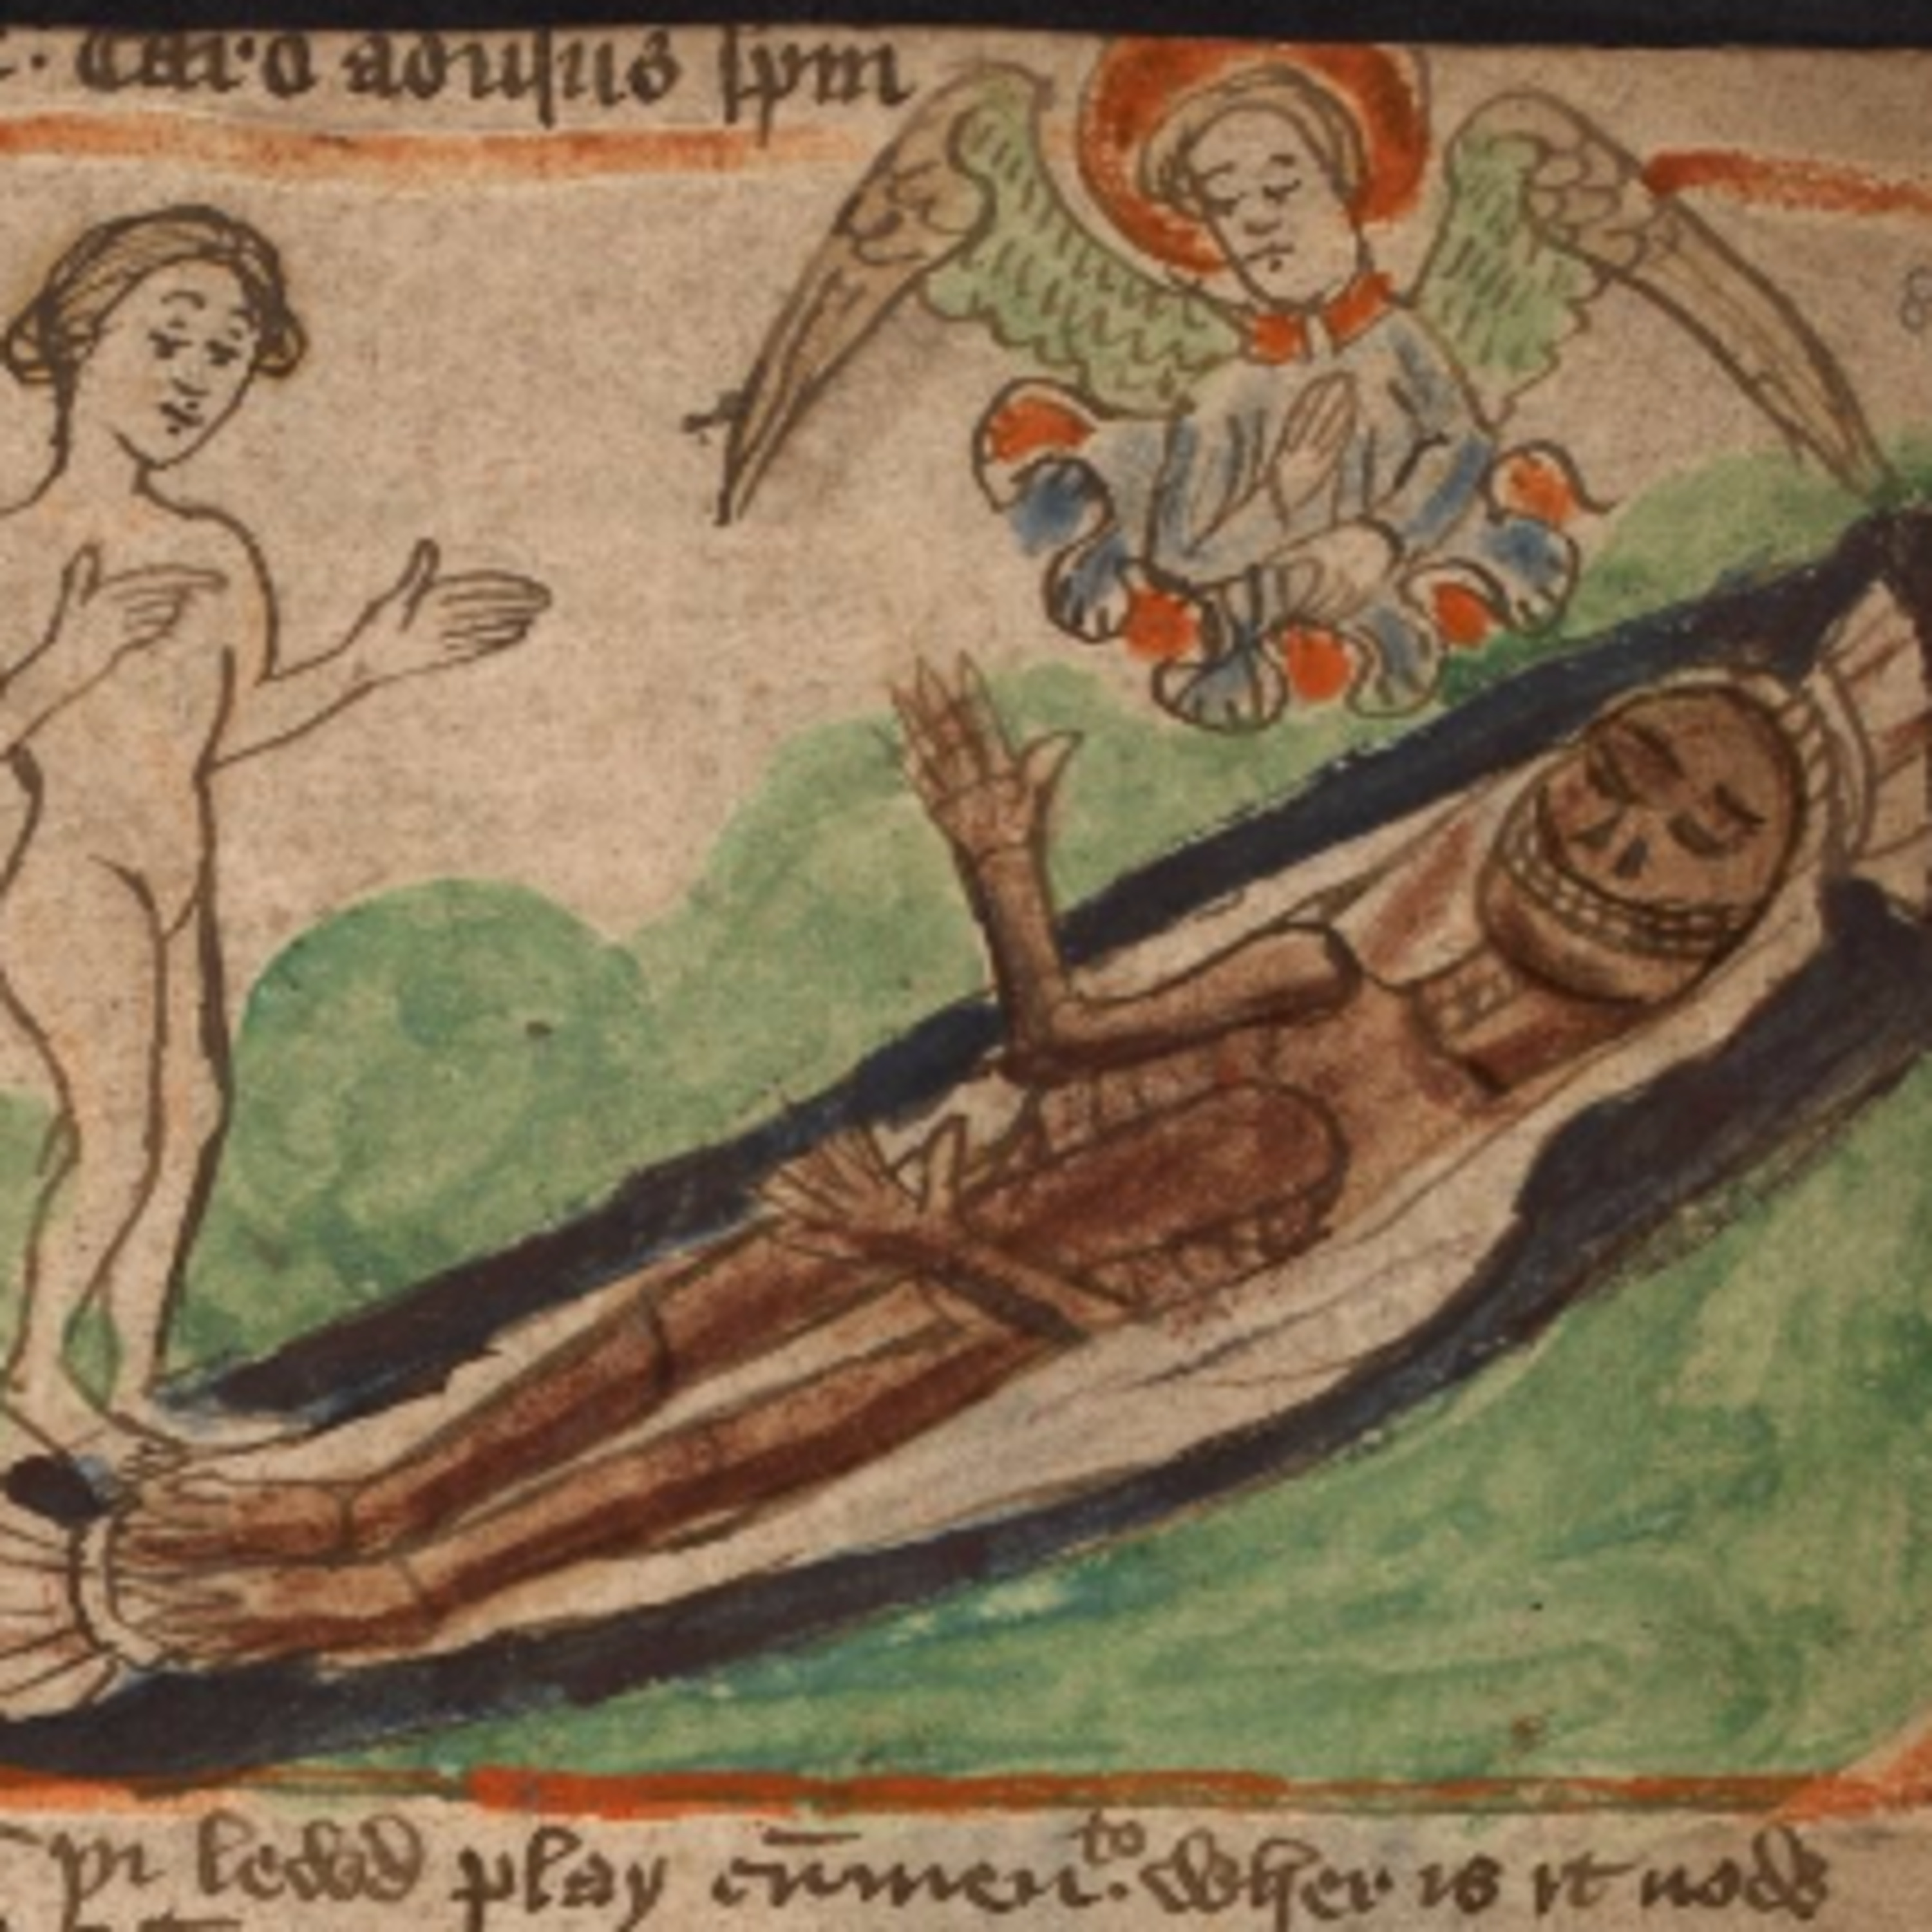 Caro adusus spm
þi lewd play cūmen to. Wher is it nowe